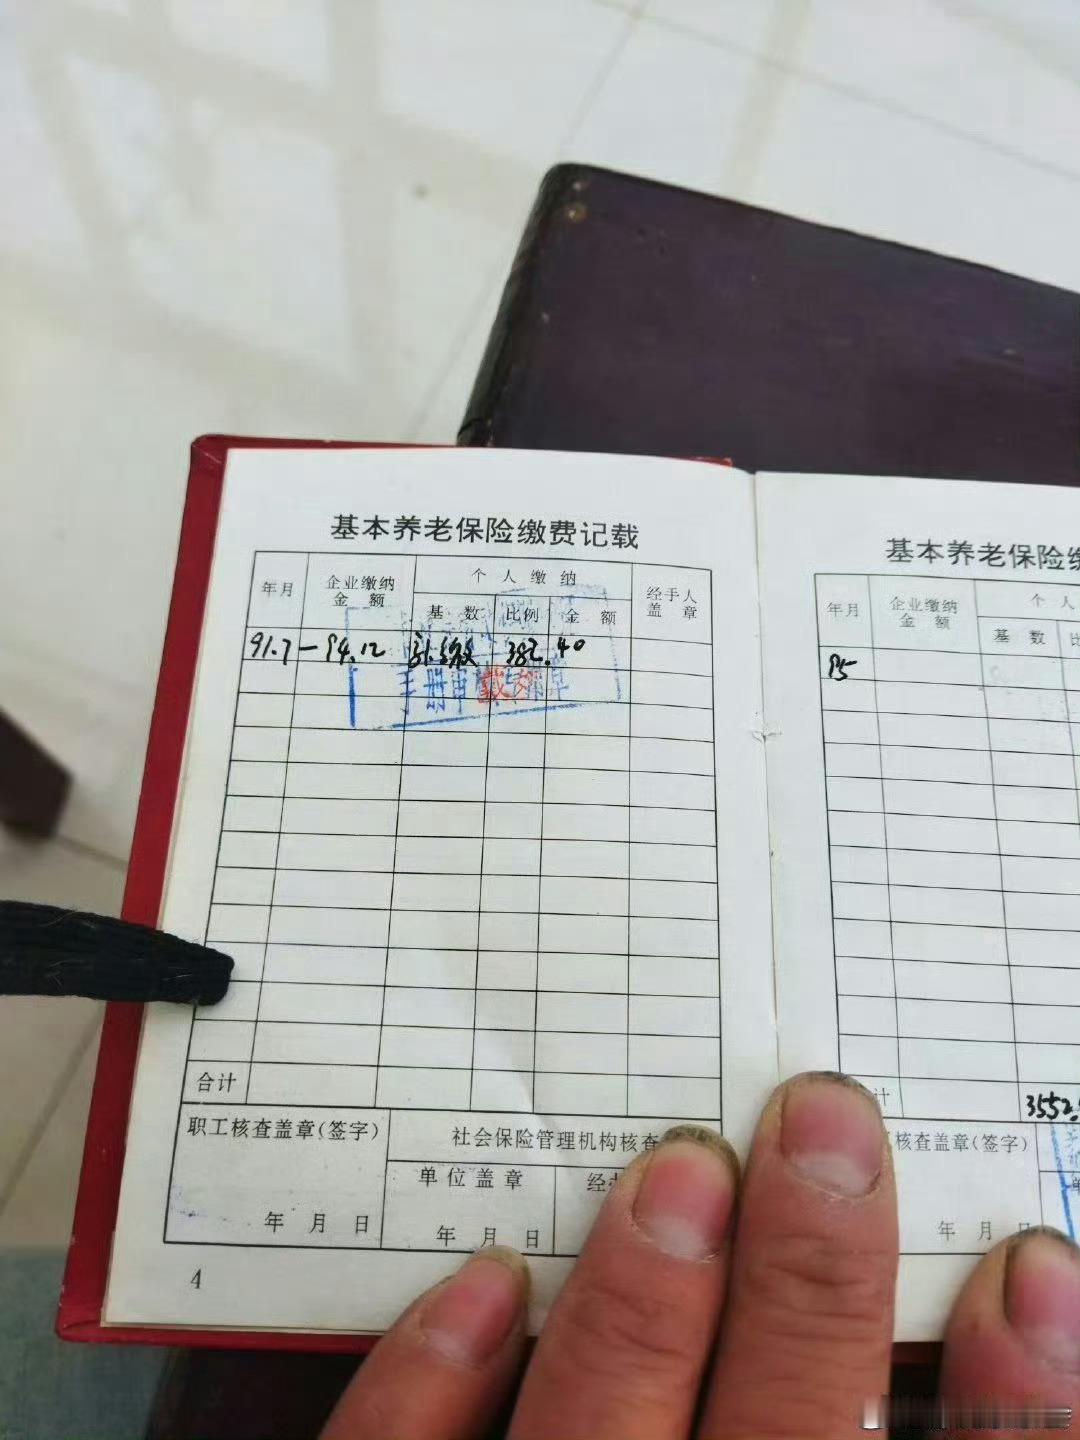 基本养老保险缴费记载
年月 企业缴纳金额 个人缴纳 经手人盖章
基数 比例 金额
91.7—94.12 补缴 382.40
手册审核专用章
合计
职工核查盖章(签字) 社会保险管理机构核查
单位盖章 经
年 月 日 年 月 日
4
基本养老保险缴
年月 企业缴纳金额 个人
基数 比
95
计 3552.
核查盖章(签字)
年 月 日